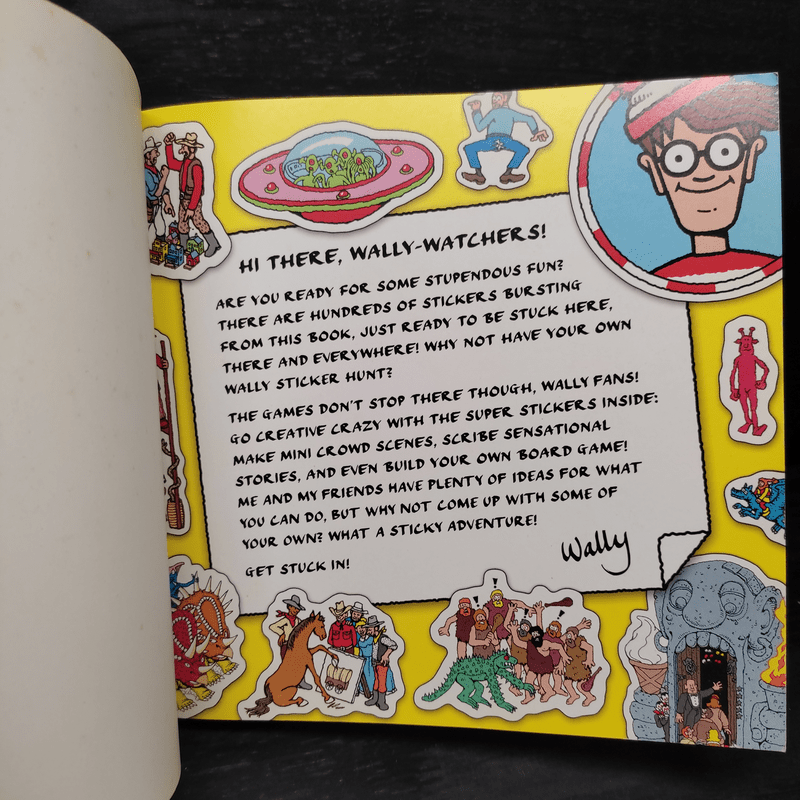 HI THERE, WALLY-WATCHERS!
ARE YOU READY FOR SOME STUPENDOUS FUN?
THERE ARE HUNDREDS OF STICKERS BURSTING
FROM THIS BOOK, JUST READY TO BE STUCK HERE,
THERE AND EVERYWHERE! WHY NOT HAVE YOUR OWN
WALLY STICKER HUNT?
THE GAMES DON'T STOP THERE THOUGH, WALLY FANS!
GO CREATIVE CRAZY WITH THE SUPER STICKERS INSIDE:
MAKE MINI CROWD SCENES, SCRIBE SENSATIONAL
STORIES, AND EVEN BUILD YOUR OWN BOARD GAME!
ME AND MY FRIENDS HAVE PLENTY OF IDEAS FOR WHAT
YOU CAN DO, BUT WHY NOT COME UP WITH SOME OF
YOUR OWN? WHAT A STICKY ADVENTURE!
GET STUCK IN!
Wally